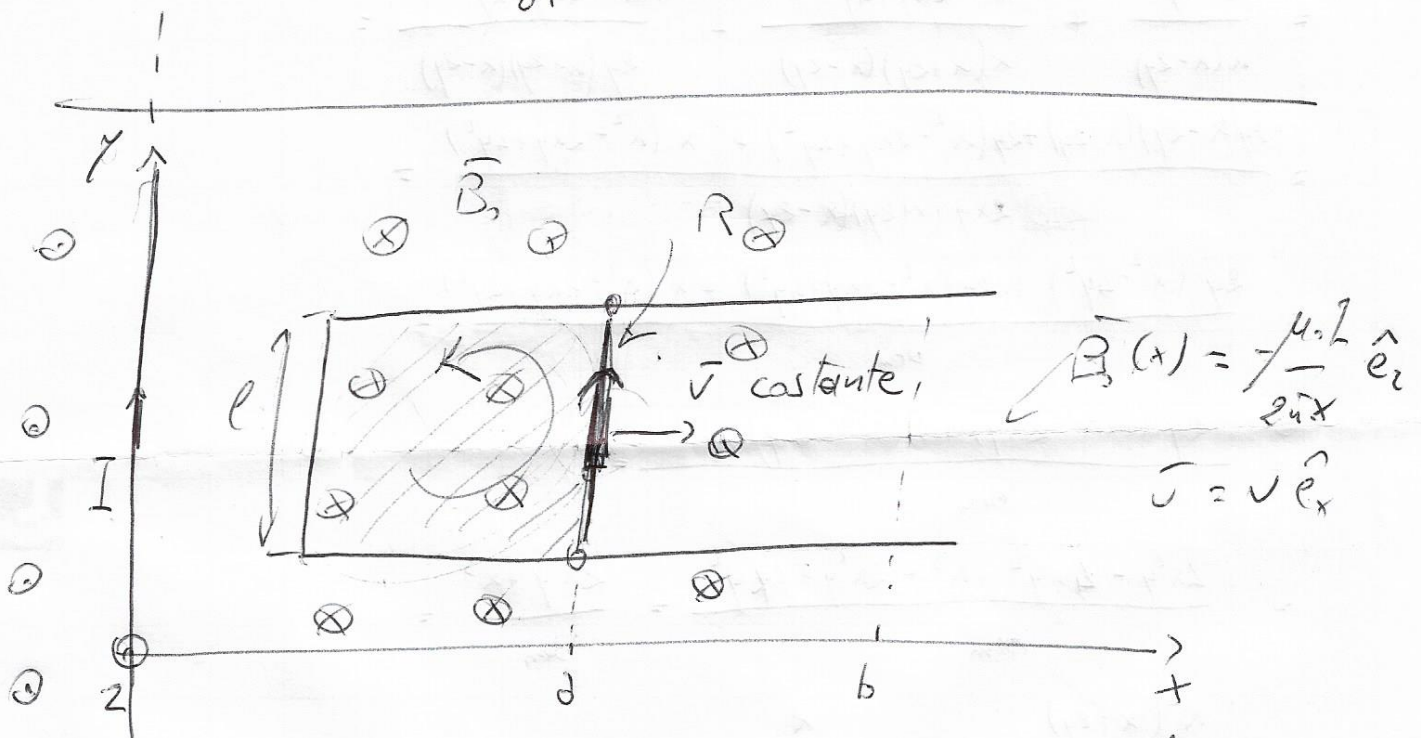 y
B̄₁
R
l
v̄ costante,
B̄₁(x) = -μ₀I/2πx ê_z
v̄ = v ê_x
I
z
a
b
x